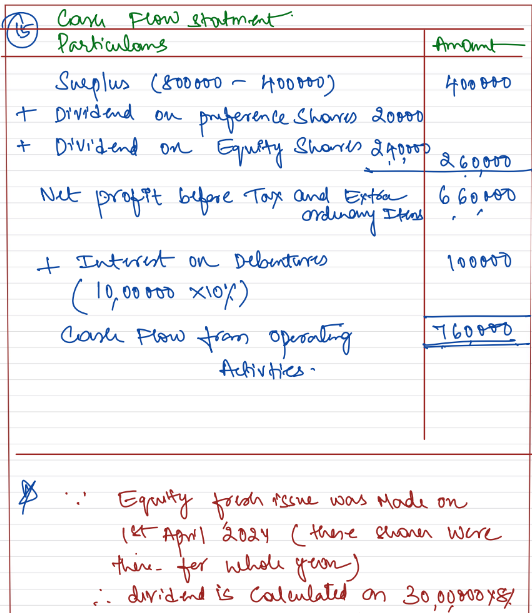 15 Cash Flow statement.
Particulars Amount
Surplus (800000 - 400000) 400000
+ Dividend on preference Shares 20000
+ Dividend on Equity Shares 240,000 260,000
Net profit before Tax and Extra 660000
ordinary Items
+ Interest on Debentures 100000
(10,00000 x10%)
Cash Flow from operating 760,000
Activities.
∵ Equity fresh issue was Made on
1st April 2024 (these shares were
there for whole year)
∴ dividend is calculated on 30,00000x8%